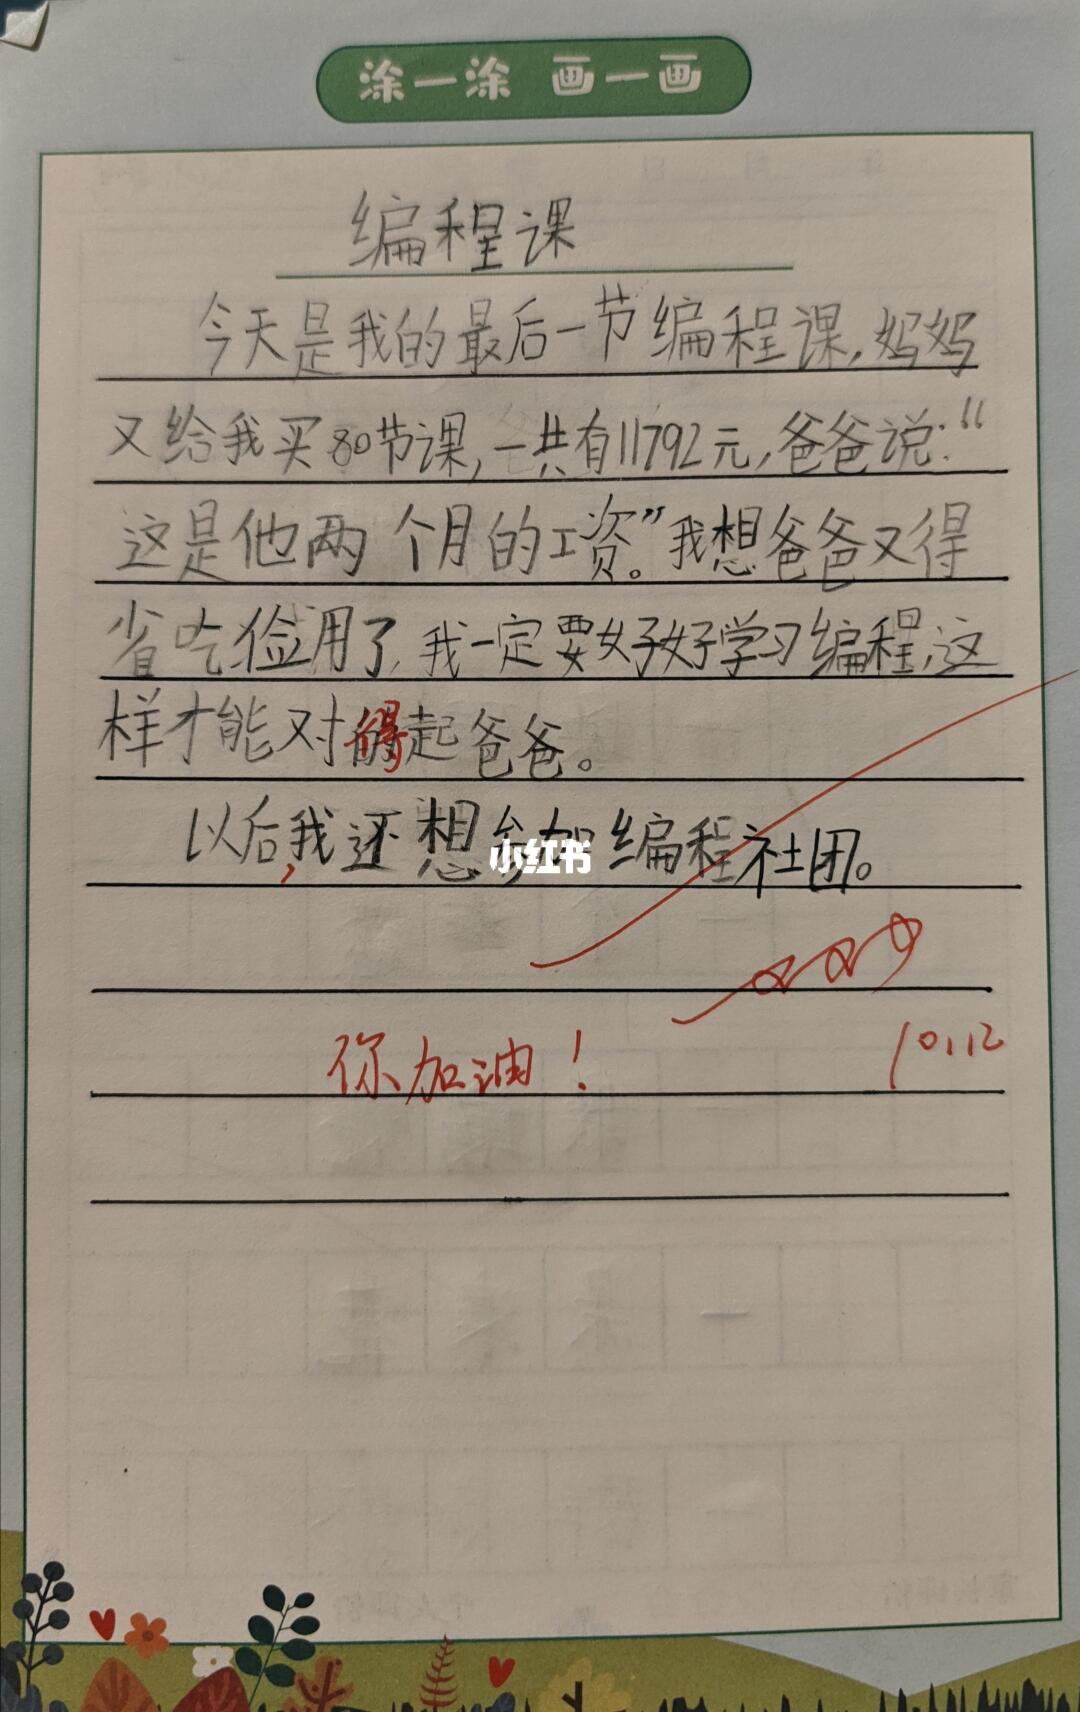 涂一涂 画一画
编程课
今天是我的最后一节编程课,妈妈
又给我买80节课,一共有11792元,爸爸说:“
这是他两个月的工资”。我想爸爸又得
省吃俭用了,我一定要好好学习编程,这
样才能对得起爸爸。
以后,我还想参加编程社团。
小红书
你加油!
10.12